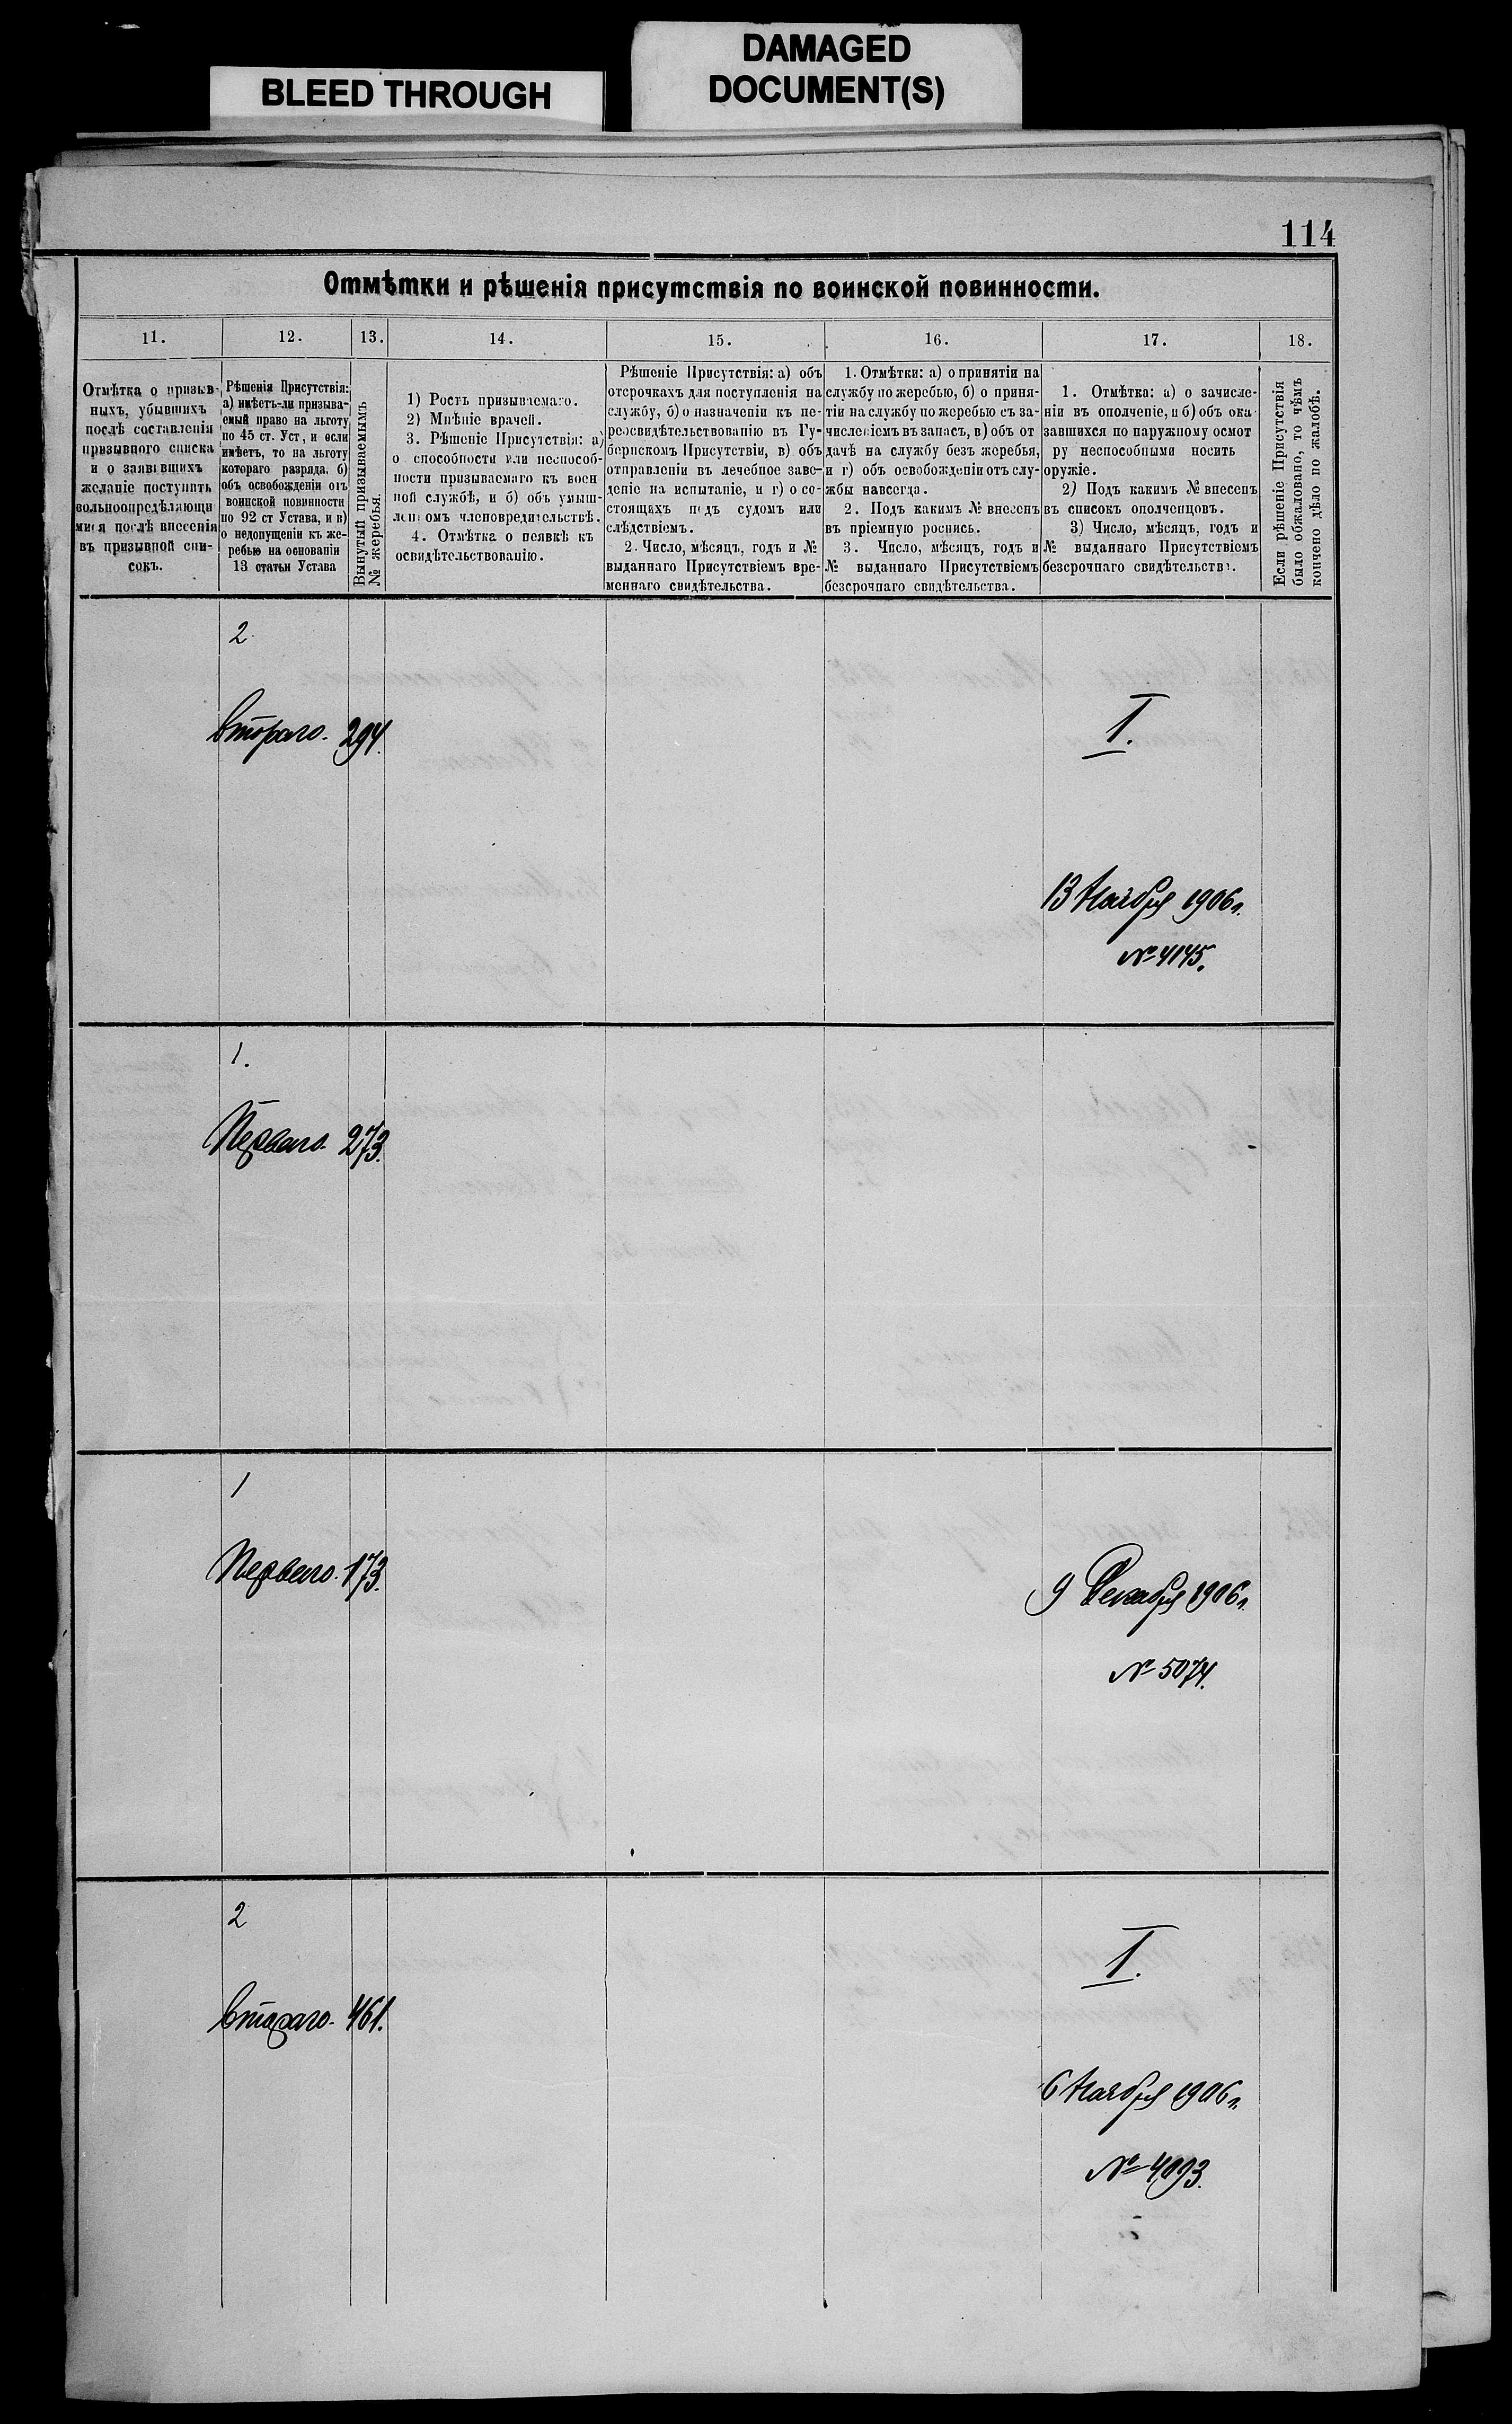 BLEED THROUGH
DAMAGED
DOCUMENT(S)
114
Отмѣтки и рѣшенія присутствія по воинской повинности.
11.
12.
13.
14.
15.
16.
17.
18.
Отмѣтка о призыв-
ныхъ, убывшихъ
послѣ составленія
призывного списка
и о заявившихъ
желаніе поступить
вольноопредѣляющи
мися послѣ внесенія
въ призывной спи-
сокъ.
Рѣшенія Присутствія:
а) имѣетъ-ли призыва-
емый право на льготу
по 45 ст. Уст, и если
имѣетъ, то на льготу
котораго разряда, б)
объ освобожденіи отъ
воинской повинности
по 92 ст Устава, и в)
о недопущеніи къ же-
ребью на основаніи
13 статьи Устава
Вынутый призываемымъ
№ жеребья.
1) Ростъ призываемаго.
2) Мнѣніе врачей.
3. Рѣшеніе Присутствія: а)
о способности или неспособ-
ности призываемаго къ воен
ной службѣ, и б) объ умыш-
леномъ членовредительствѣ.
4. Отмѣтка о неявкѣ къ
освидѣтельствованію.
Рѣшеніе Присутствія: а) объ
отсрочкахъ для поступленія на
службу, б) о назначеніи къ пе-
реосвидѣтельствованію въ Гу-
бернскомъ Присутствіи, в) объ
отправленіи въ лечебное заве-
деніе на испытаніе, и г) о со-
стоящихъ подъ судомъ или
слѣдствіемъ.
2. Число, мѣсяцъ, годъ и №
выданнаго Присутствіемъ вре-
меннаго свидѣтельства.
1. Отмѣтки: а) о принятіи на
службу по жеребью, б) о приня-
тіи на службу по жеребью съ за-
численіемъ въ запасъ, в) объ от
дачѣ на службу безъ жеребья,
и г) объ освобожденіи отъ слу-
жбы навсегда.
2. Подъ какимъ № внесенъ
въ пріемную роспись.
3. Число, мѣсяцъ, годъ и
№ выданнаго Присутствіемъ
безсрочнаго свидѣтельства.
1. Отмѣтка: а) о зачисле-
ніи въ ополченіе, и б) объ ока
завшихся по наружному осмот
ру неспособными носить
оружіе.
2) Подъ какимъ № внесенъ
въ списокъ ополченцовъ.
3) Число, мѣсяцъ, годъ и
№ выданнаго Присутствіемъ
безсрочнаго свидѣтельства.
Если рѣшеніе Присутствія
было обжаловано, то чѣмъ
кончено дѣло по жалобѣ.
2
Втораго. 294.
I.
13 Ноября 1906 г.
№ 4145.
1.
Перваго. 273.
1
Перваго. 173.
9 Декабря 1906 г.
№ 5074.
2
Втораго. 461.
I.
6 Ноября 1906 г.
№ 4093.